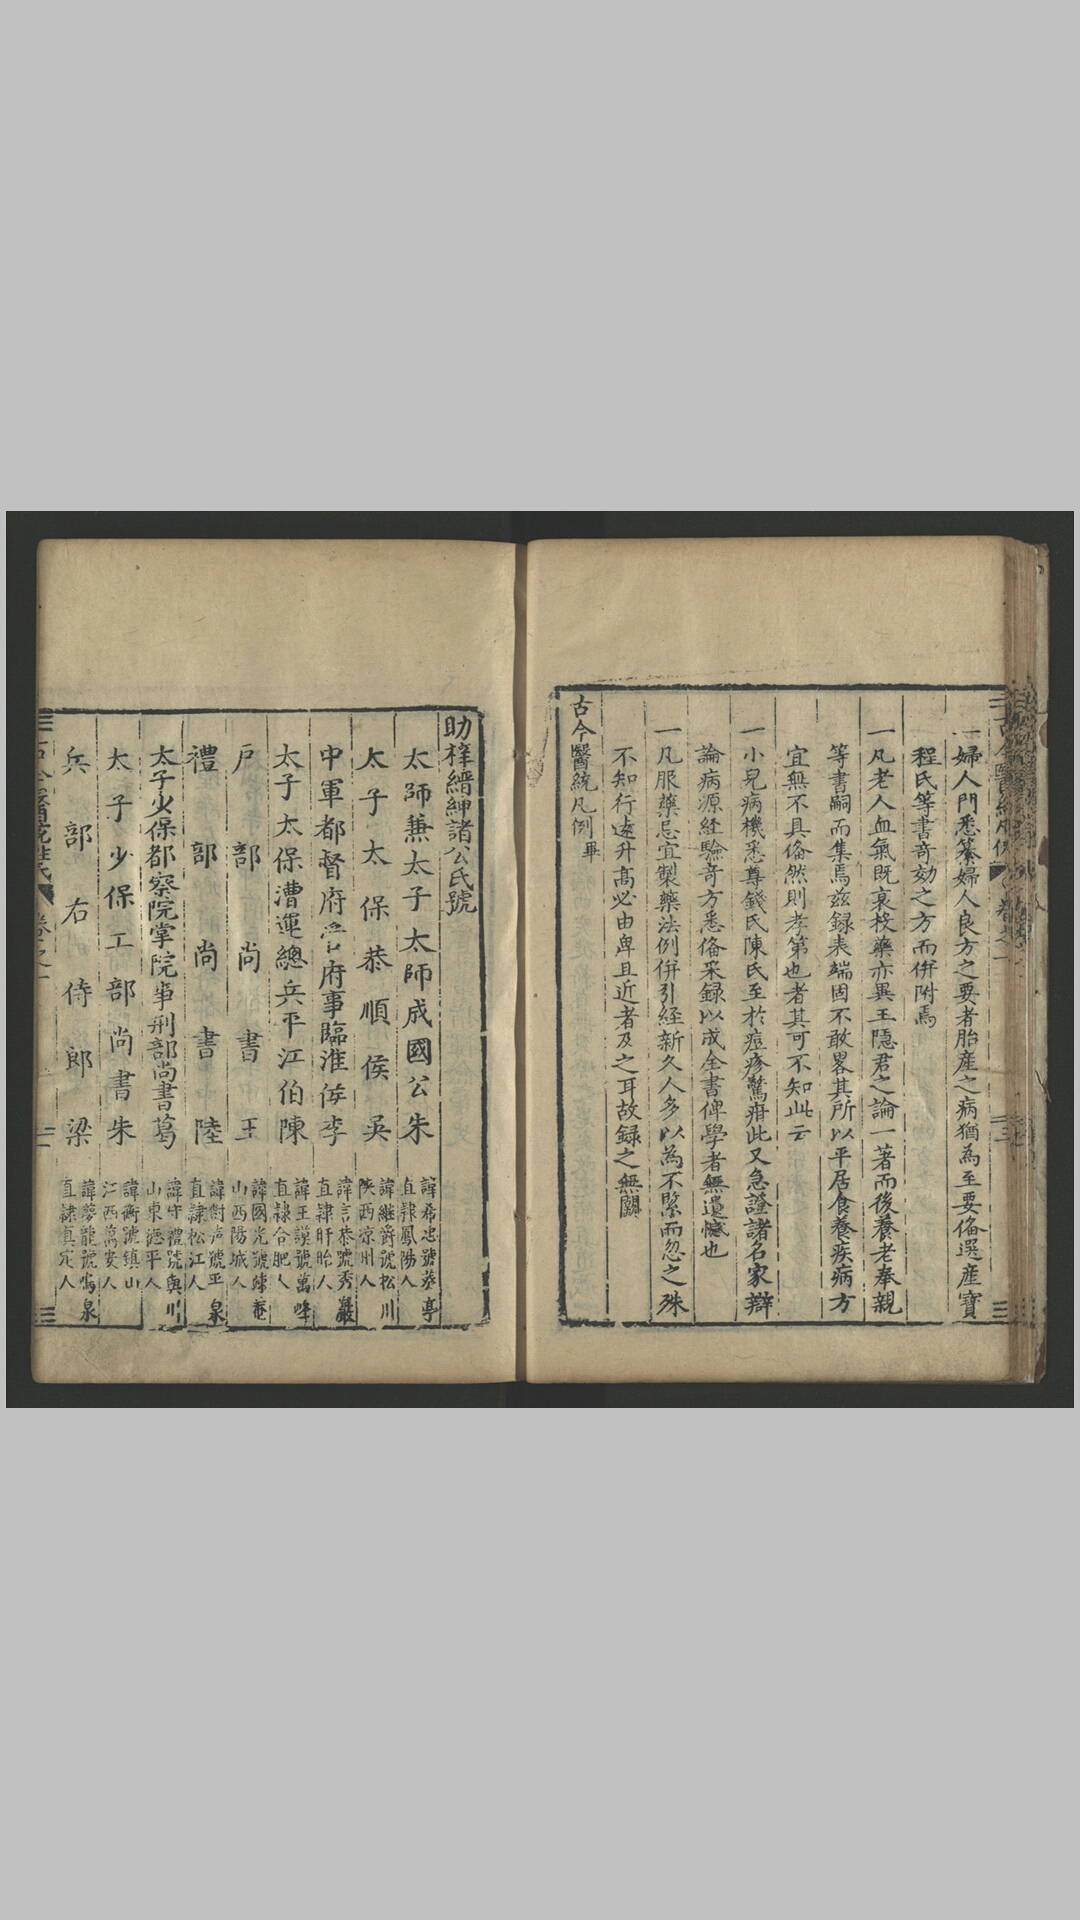 一婦人門悉纂婦人良方之要者胎産之病猶為至要俻選産寳
程氏等書竒効之方而併附焉
一凡老人血氣既衰校藥亦異王隠君之論一著而後養老奉親
等書嗣而集焉兹録表端固不敢畧其所以平居食養疾病方
宜無不具俻然則孝第也者其可不知此云
一小兒病機悉尊錢氏陳氏至於痘疹驚疳此又急證諸名家辯
論病源经驗竒方悉俻采録以成全書俾學者無遺憾也
一凡服藥忌宜製藥法例併引经新久人多以為不緊而忽之殊
不知行逺升髙必由卑且近者及之耳故録之無闕
古今醫統凡例畢
助梓縉紳諸公氏號
太師兼太子太師成國公朱 諱希忠號莑亭 直隷鳳陽人
太子太保恭順侯吳 諱継爵號松川 陕西凉州人
中軍都督府管府事臨淮侯李 諱言恭號秀巖 直隷盱眙人
太子太保漕運總兵平江伯陳 諱王謨號萬峰 直隷合肥人
戸部尚書王 諱國光號疎菴 山西陽城人
禮部尚書陸 諱樹声號平泉 直隷松江人
太子少保都察院掌院事刑部尚書葛 諱守禮號與川 山東徳平人
太子少保工部尚書朱 諱衡號鎮山 江西萬安人
兵部右侍郎梁 諱夢龍號鳴泉 直隷真定人